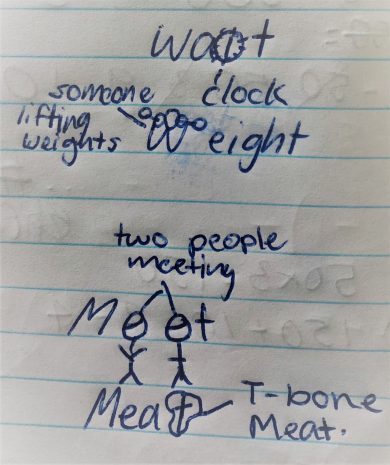 wait
clock
someone
lifting
weights
Weight
two people
meeting
Meet
Meat
T-bone
Meat.